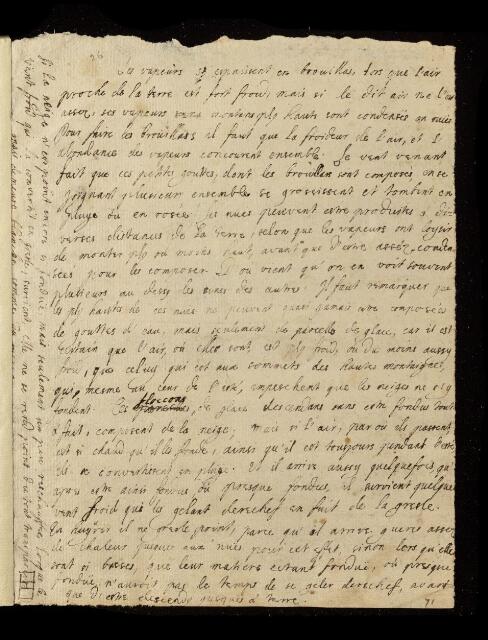 26
Les vapeurs s'epaississent en brouillas, lors que l'air
proche de la terre est fort froid, mais si le dit air ne l'est
assez, ses vapeurs montans plus hauts sont condensés en nuës
Pour faire les brouillass il faut que la froideur de l'air, et l'
abondance des vapeurs concourent ensemble. Le vent venant
fait que ces petites gouttes, dont les brouillas sont composés, en se
joignant plusieurs ensembles se grossissent et tombent en
pluye ou en rosée. Les nues peuvent estre produites à di-
verses distances de la terre, selon que les vapeurs ont loysir
de monter plus ou moins haut, avant que d'estre assez conden-
sees pour les composer. D'où vient qu'on en voit souvent
plusieurs au dessus les unes des autres. Il faut remarquer que
les plus hautes de ces nues ne peuvent quasi jamais estre composées
de gouttes d'eau, mais seulement de parcelles de glace, car il est
certain que l'air, où elles sont est plus froid, ou du moins aussy
froid, que celuy qui est aux sommets des hautes montaignes,
qui mesme au cœur de l'esté, empeschent que les neiges ne s'y
fondent. Ces floccons de glace descendans sans estre fondus tout
à fait, composent de la neige; mais si l'air, par où ils passent
est si chaud qu'il les fonde, ainsi qu'il est toujours pendant l'esté
ils se convertissent en pluye. Et il arrive aussy quelquefois, qu'
apres estre ainsi fondus, ou presque fondus, il survient quelque
vent froid qui les gelant derechef en fait de la gresle.
En huyver il ne gresle point, parce qu'il arrive gueres assez
de chaleur jusques aux nuës pour cet effet, sinon lors qu'elles
sont si basses, que leur matiere estant fondue, ou presque
fondue, n'auroit pas le temps de se geler derechef, avant
que d'estre descendu jusques à terre.
Si la neige n'est point encore si fondue mais seulement un peu
vent froid qui la convertit en gresle, survient, elle ne se rend point